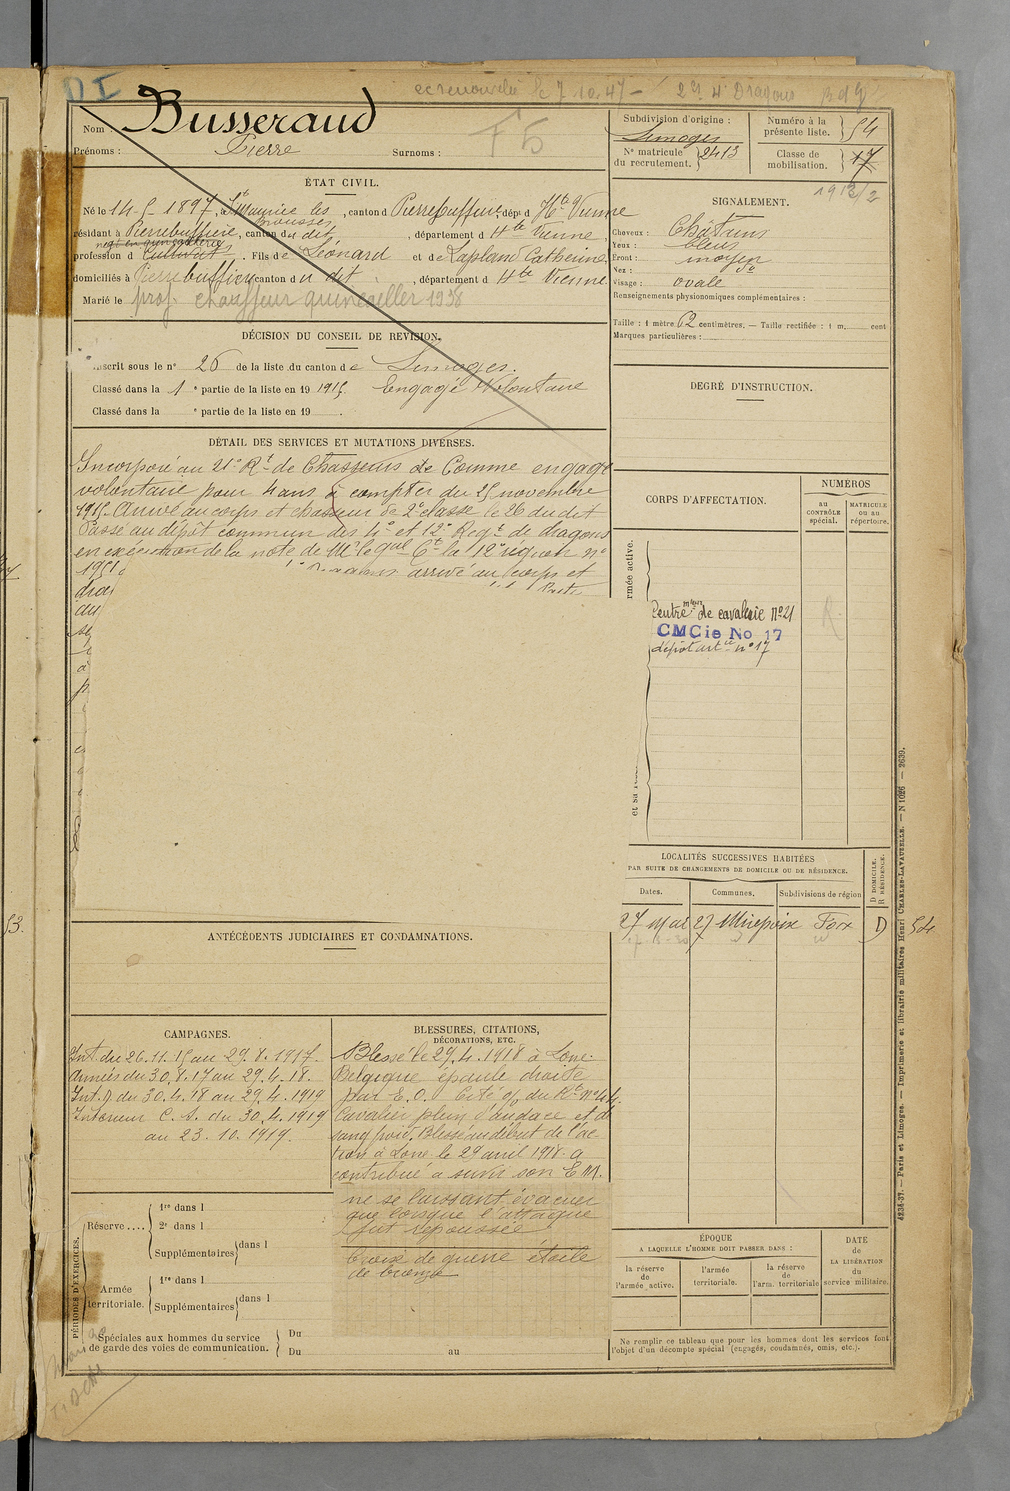 DI
Busseraud
Nom
Prénoms : Pierre Surnoms :
F 5
Subdivision d'origine :
Limoges
N° matricule du recrutement. 2413
Numéro à la présente liste. 54
Classe de mobilisation. 17
1912/2
ÉTAT CIVIL.
Né le 14-5-1897, à St Maurice les Brousses, canton d Pierrebuffière, dép. d Hte Vienne
résidant à Pierrebuffière, canton du dit, département d Hte Vienne,
profession d cultivat. Fils de Léonard et de Lapland Catherine
domiciliés à Pierrebuffière, canton du dit, département d Hte Vienne
Marié le
prof. chauffeur quincailler 1938
SIGNALEMENT.
Cheveux : Châtains
Yeux : bleus
Front : moyen
Nez : do
Visage : ovale
Renseignements physionomiques complémentaires :
Taille : 1 mètre 62 centimètres. — Taille rectifiée : 1 m. cent
Marques particulières :
DÉCISION DU CONSEIL DE REVISION.
Inscrit sous le n° 26 de la liste du canton de Limoges.
Classé dans la 1e partie de la liste en 1915 Engagé Volontaire
Classé dans la e partie de la liste en 19 .
DEGRÉ D'INSTRUCTION.
DÉTAIL DES SERVICES ET MUTATIONS DIVERSES.
Incorporé au 21e Rt de Chasseurs de Comme engagé
volontaire pour 4 ans à compter du 25 novembre
1915. Arrivé au corps et chasseur de 2e classe le 26 du dit
Passé au dépôt commun des 4e et 12e Regt de dragons
en exécution de la note de Mr le gal Ct la 12e région no
arrivé au corps et
CORPS D'AFFECTATION.
NUMÉROS
AU CONTRÔLE spécial.
MATRICULE ou au répertoire.
rmée active.
Centre mteur de cavalerie No 21
CMCie No 17
dépôt artie no 17
R.
et sa rése
LOCALITÉS SUCCESSIVES HABITÉES
PAR SUITE DE CHANGEMENTS DE DOMICILE OU DE RÉSIDENCE.
Dates.
Communes.
Subdivisions de région
D DOMICILE.
R RÉSIDENCE.
27 Mai 27 Mirepoix Foix D 54
ANTÉCÉDENTS JUDICIAIRES ET CONDAMNATIONS.
CAMPAGNES.
Int. du 26.11.15 au 29.8.1917.
Armées du 30.8.17 au 29.4.18.
Int. du 30.4.18 au 29.4.1919
Intérieur C.S. du 30.4.1919
au 23.10.1919.
BLESSURES, CITATIONS,
DÉCORATIONS, ETC.
Blessé le 29.4.1918 à Locre
Belgique épaule droite
par E.O. Cité
Cavalier plein d'audace et de
sang froid. Blessé au début de l'ac
tion à Locre le 29 avril 1918. a
contribué à suivre son E.M.
ne se laissant évacuer
que lorsque l'attaque
fut repoussée
Croix de guerre étoile
de bronze
PÉRIODES D'EXERCICES.
Réserve....
1re dans l
2e dans l
Supplémentaires dans l
Armée territoriale.
1re dans l
Supplémentaires dans l
Spéciales aux hommes du service
de garde des voies de communication.
Du
Du au
ÉPOQUE
A LAQUELLE L'HOMME DOIT PASSER DANS :
la réserve de l'armée active.
l'armée territoriale.
la réserve de l'arm. territoriale
DATE de LA LIBÉRATION du service militaire.
Ne remplir ce tableau que pour les hommes dont les services font
l'objet d'un décompte spécial (engagés, condamnés, omis, etc.).
4238-37. — Paris et Limoges. — Imprimerie et librairie militaires Henri CHARLES-LAVAUZELLE. — N 1026 — 2639.
53.